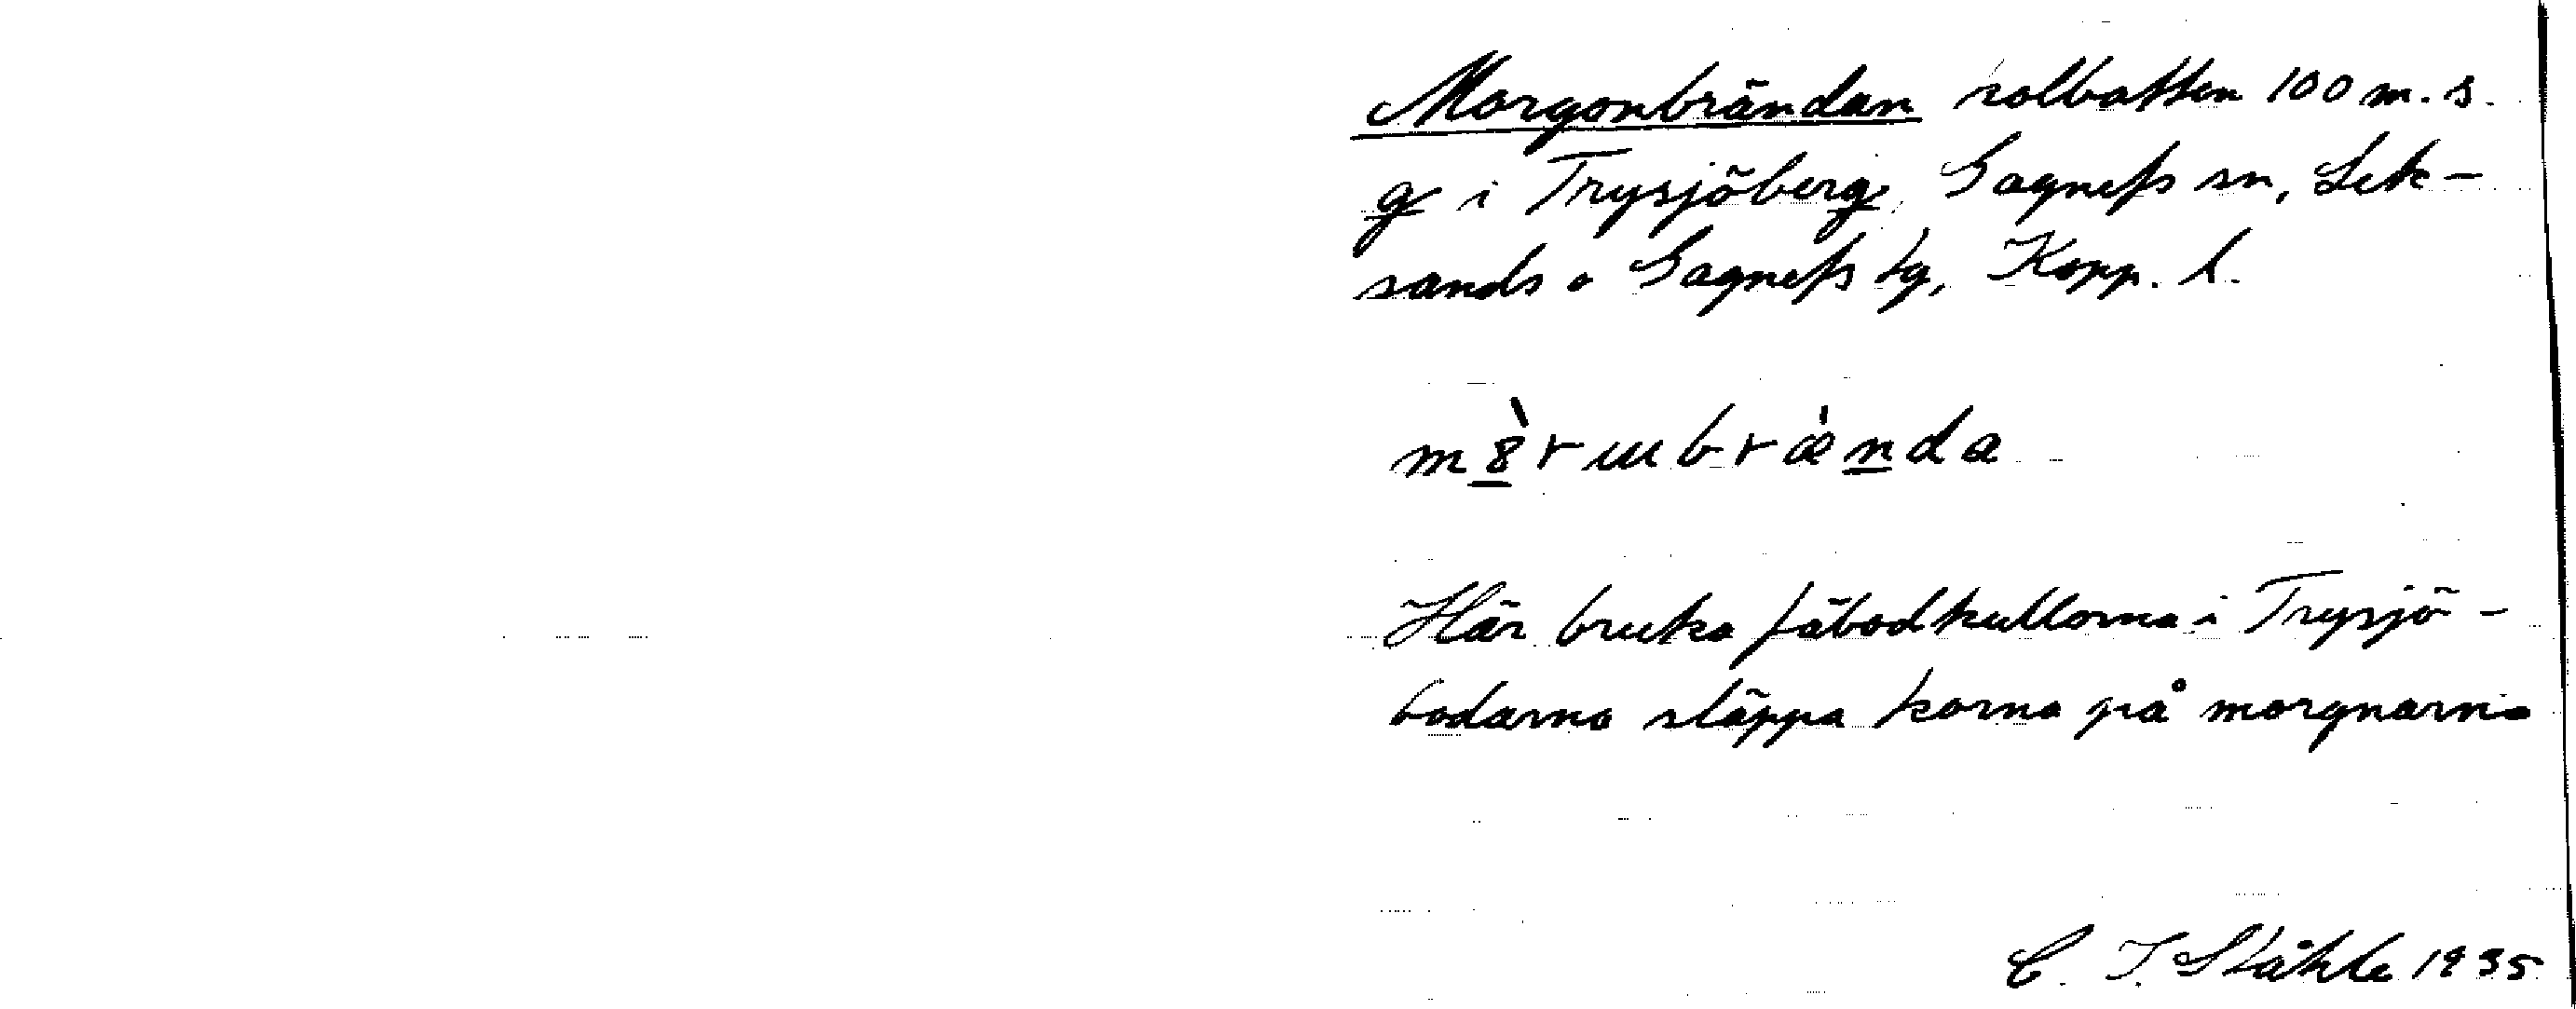 Morgonbrändan kolbotten 100 m. s.
g i Trysjöberg, Gagnefs sn, Lek-
sands o Gagnefs tg, Kopp. l.
Här bruka fäbodkullorna i Trysjö-
bodarna släppa korna på morgnarna
C. I. Ståhle 1935